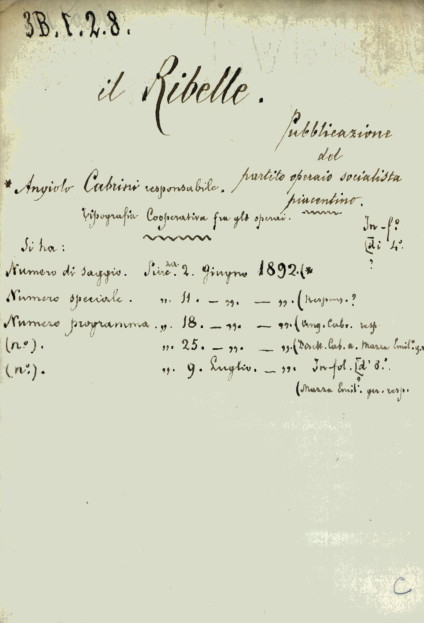 3B.1.2.8.
il Ribelle.
Pubblicazione
del
partito operaio socialista
piacentino.
* Angiolo Cabrini responsabile.
Tipografia Cooperativa fra gli operai.
In-f.º
(di 4.º
?
Si ha:
Numero di saggio. Piac.za 2. Giugno 1892.(*
Numero speciale. „ 11. - „. - „.(Respons.?
Numero programma. „ 18. - „. - „.(Ang. Cabr. resp.
(nº). „ 25. - „. - „.(Dirett. Cab. a. Mazza Emil.º ger.
(nº). „ 9. Luglio. - „. In-fol. (di 8.º
(Mazza Emil.º ger. resp.
C